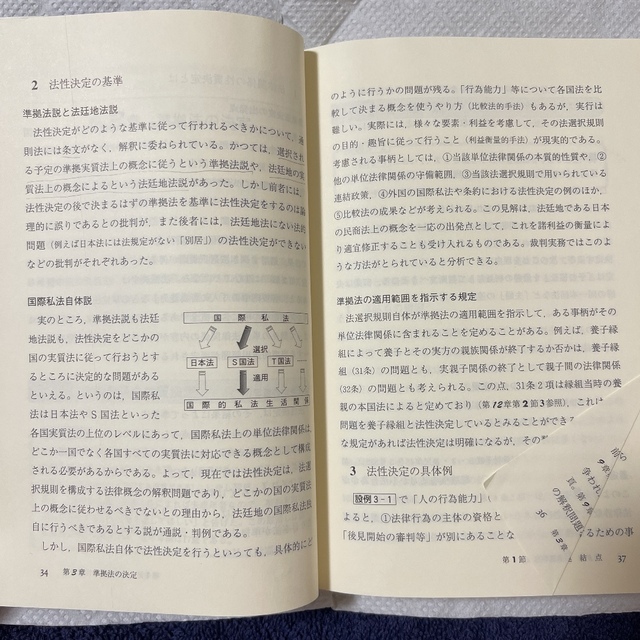 2 法性決定の基準
準拠法説と法廷地法説
法性決定がどのような基準に従って行われるべきかについて，通
則法には条文がなく，解釈に委ねられている。かつては，選択され
る予定の準拠実質法上の概念に従うという準拠法説や，法廷地の実
質法上の概念によるという法廷地法説があった。しかし前者には，
法性決定の後で決まるはずの準拠法を基準に法性決定をするのは論
理的に誤りであるとの批判が，また後者には，法廷地法にない法的
問題（例えば日本法には法規定がない「別居」）の法性決定ができない
などの批判がそれぞれあった。
国際私法自体説
実のところ，準拠法説も法廷
地法説も，法性決定をどこかの
国の実質法に従って行おうとす
るところに決定的な問題がある
といえる。というのは，国際私
法は日本法やS国法といった
各国実質法の上位のレベルにあって，国際私法上の単位法律関係は，
どこか一国でなく各国すべての実質法に対応できる概念として構成
される必要があるからである。よって，現在では法性決定は，法選
択規則を構成する法律概念の解釈問題であり，どこかの国の実質法
上の概念に従わせるべきでないとの理由から，法廷地の国際私法独
自に行うべきであるとする説が通説・判例である。
しかし，国際私法自体で法性決定を行うといっても，具体的にど
国際私法
選択
日本法 S国法 T国法
適用
国際的私法生活関係
34 第3章 準拠法の決定
のように行うかの問題が残る。「行為能力」等について各国法を比
較して決まる概念を使うやり方（比較法的手法）もあるが，実行は
難しい。実際には，様々な要素・利益を考慮して，その法選択規則
の目的・趣旨に従って行うこと（利益衡量的手法）が現実的である。
考慮される事柄としては，①当該単位法律関係の本質的性質や，②
他の単位法律関係の守備範囲，③当該法選択規則で用いられている
連結政策，④外国の国際私法や条約における法性決定の例のほか，
⑤比較法の成果などが考えられる。この見解は，法廷地である日本
の民商法上の概念を一応の出発点として，これを諸利益の衡量によ
り適宜修正することも受け入れるものである。裁判実務ではこのよ
うな方法がとられていると分析できる。
準拠法の適用範囲を指示する規定
法選択規則自体が準拠法の適用範囲を指示して，ある事柄がその
単位法律関係に含まれることを定めることがある。例えば，養子縁
組によって養子とその実方の親族関係が終了するか否かは，養子縁
組（31条）の問題とも，実親子関係の終了として親子間の法律関係
（32条）の問題とも考えられる。この点，31条2項は縁組当時の養
親の本国法によると定めており（第12章第2節3参照），これは
問題を養子縁組と法性決定しているとみることができる
な規定があれば法性決定は明確になるが，その
3 法性決定の具体例
設例3-1で「人の行為能力」（
よると，①法律行為の主体の資格と
「後見開始の審判等」が別にあることな
るための事
第1節
結点 37
争われ
9章
頁。第9章
の解釈問題に
36 第3章